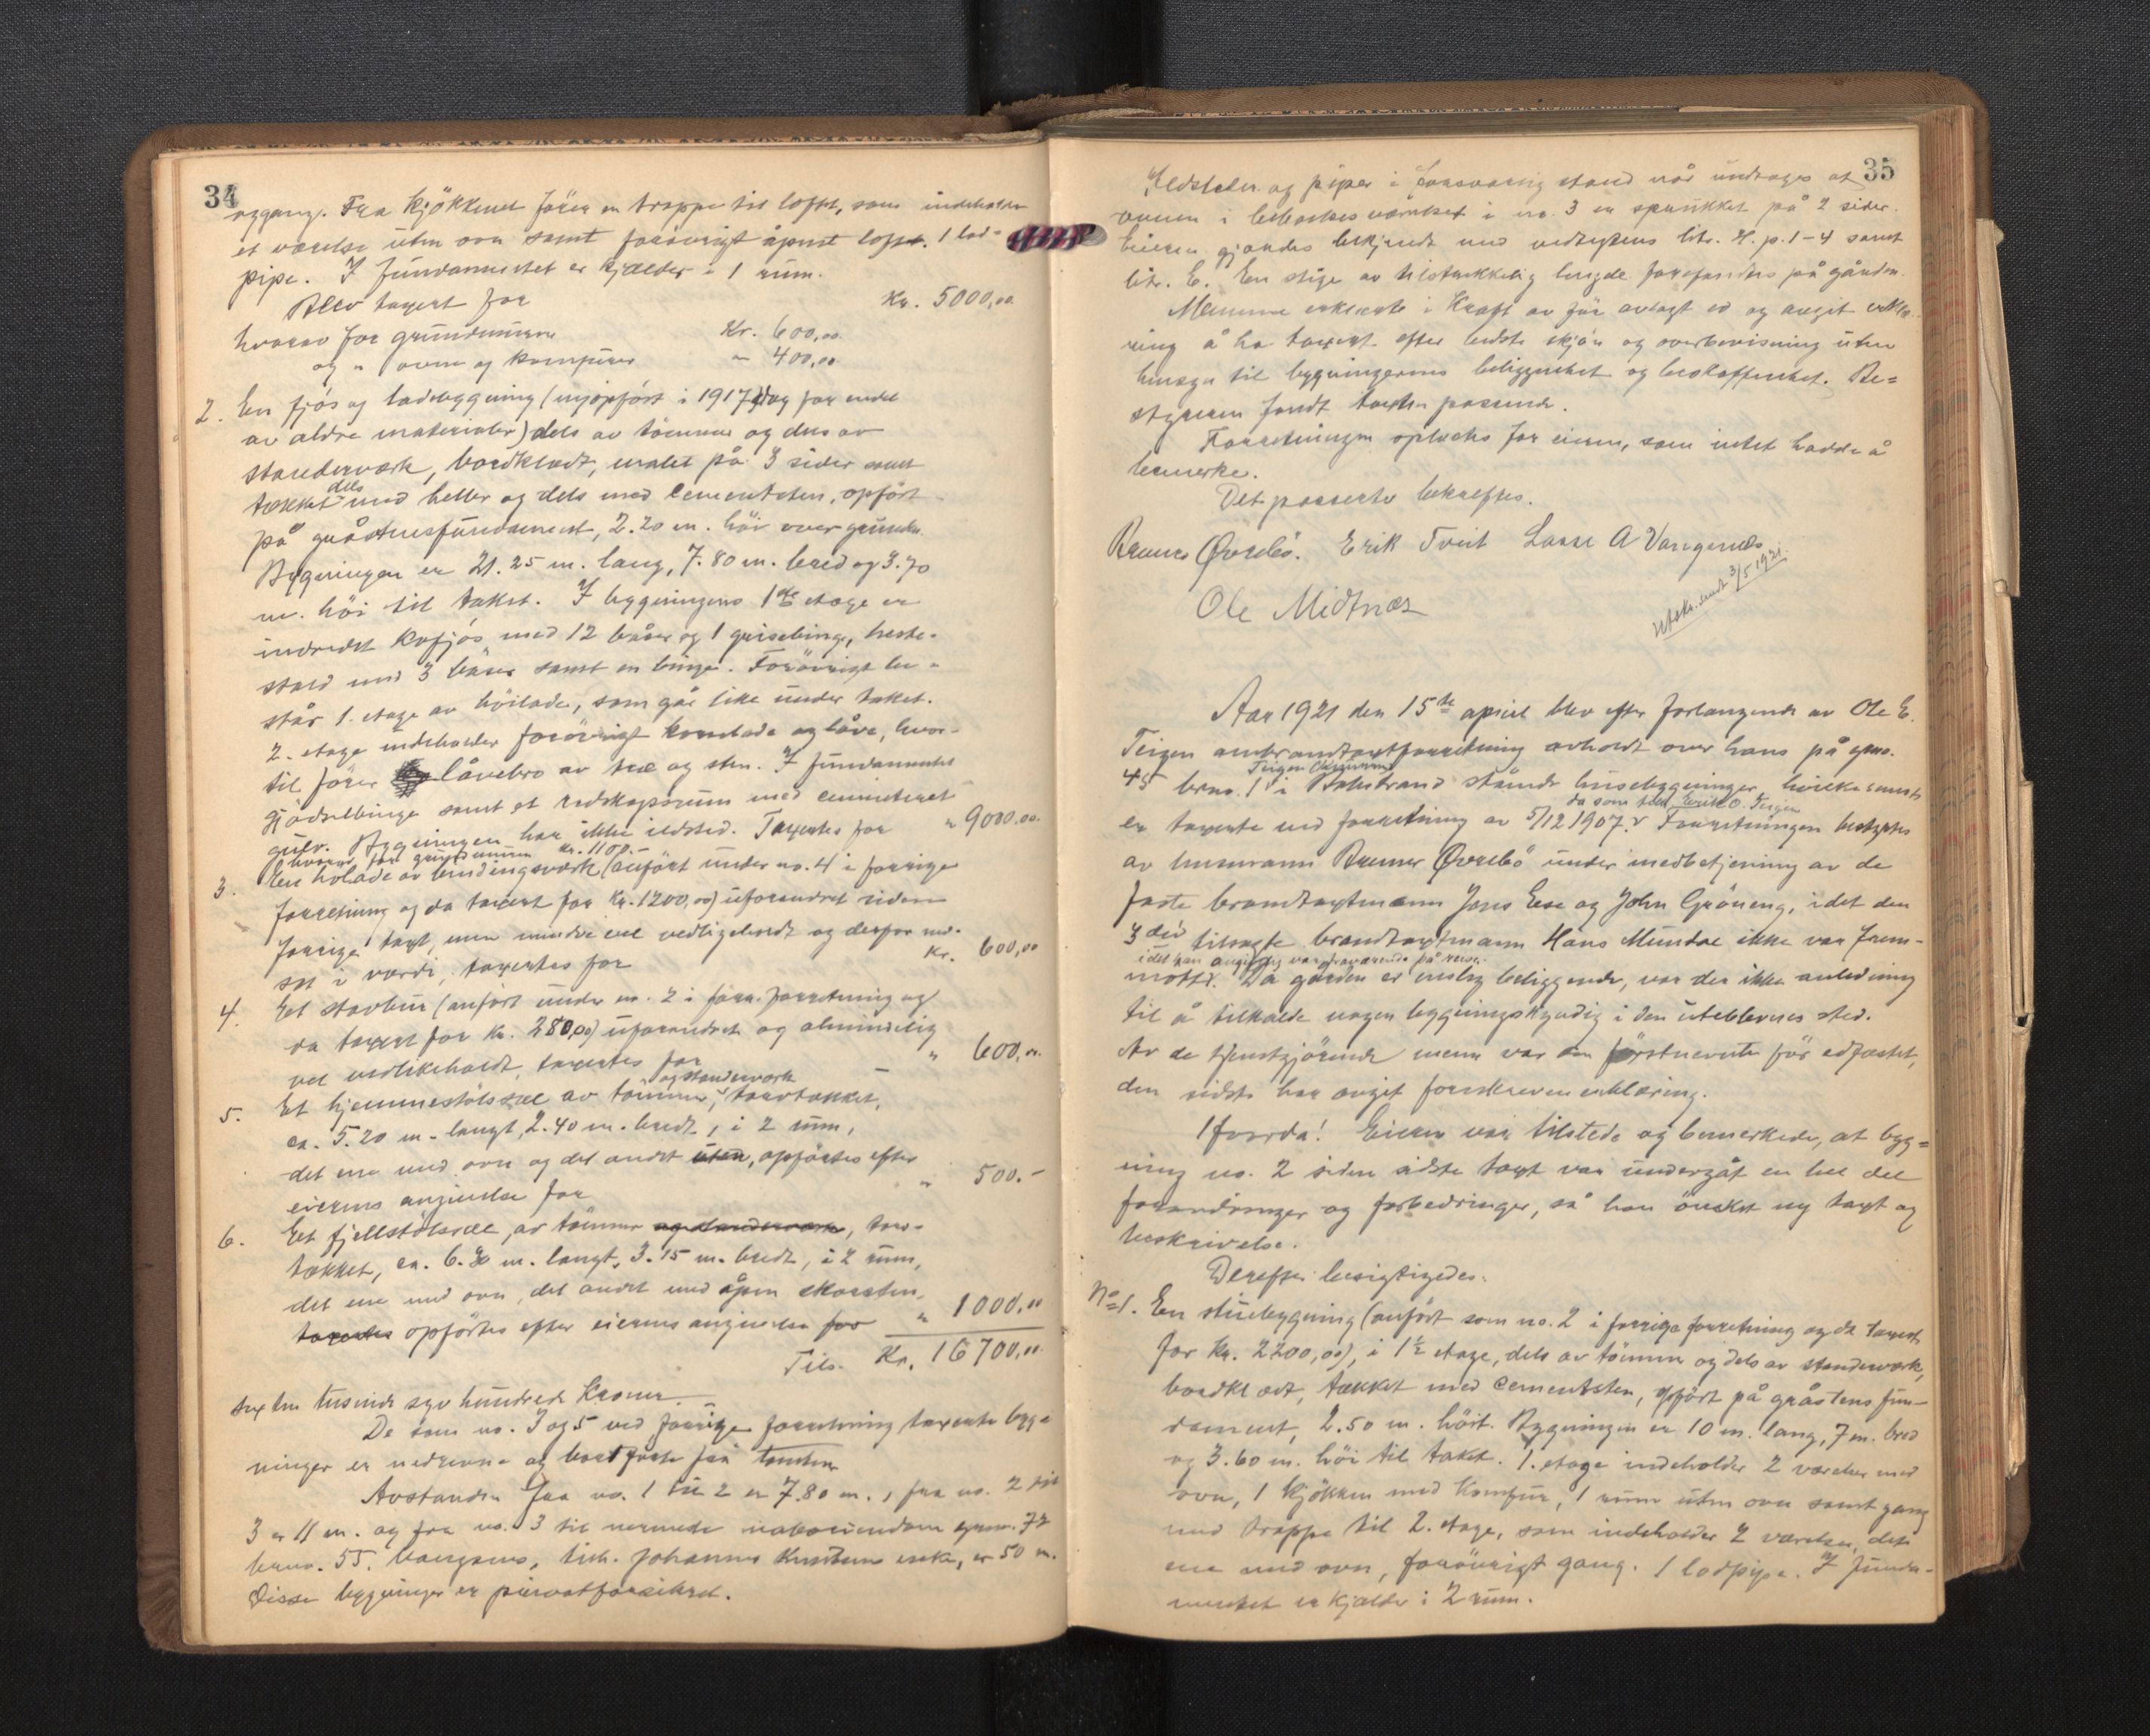 34
opgang. Fra kjøkkenet fører en trappe til loftet, som indeholder
et værelse uten ovn samt forøvrigt åpent loft. 1 lod-
pipe. I fundamentet er kjælder i 1 rum.
Blev taxert for Kr. 5000,00
hvorav for grundmuren Kr. 600,00
og " ovne og komfurer " 400,00
2. En fjøs og ladebygning (nyopført i 1917, dog for endel
av ældre materialer) dels av tømmer og dels av
standerværk, bordklædt, malet på 3 sider samt
tækket dels med heller og dels med cementsten, opført
på gråstensfundament, 2.20 m. høi over grunden.
Bygningen er 21.25 m. lang, 7.80 m. bred og 3.70
m. høi til taket. I bygningens 1ste etage er
indredet kofjøs med 12 båser og 1 grisebinge, heste-
stald med 3 båser samt en binge. Forøvrigt be-
står 1. etage av høilade, som går like under taket.
2. etage indeholder forøvrigt kornlade og låve, hvor-
til fører låvebro av træ og sten. I fundamentet
gjødselbinge samt et redskapsrum med cementeret
gulv. Bygningen har ikke ildsted. Taxertes for " 9000.00
hvorav for grundmuren kr. 1100.-
3. En holade av bindingsværk (anført under no. 4 i forrige
forretning og da taxert for Kr. 1200,00) uforandret siden
forrige taxt, men mindre vel vedligeholdt og derfor ned-
sat i værdi, taxertes for Kr. 600,00
4. Et stavbur (anført under no. 2 i forr. forretning og
da taxert for Kr. 280,00) uforandret og almindelig
vel vedlikeholdt, taxertes for " 600,00
5. Et hjemmestølssel av tømmer og standerværk, torvtækket,
ca. 5.20 m. langt, 2.40 m. bredt, i 2 rum,
det ene med ovn og det andet uten, opførtes efter
eierens angivelse for " 500.-
6. Et fjellstølssel, av tømmer og standerværk, torv-
tækket, ca. 6.30 m. langt, 3.15 m. bredt, i 2 rum,
det ene med ovn, det andet med åpen skorsten,
taxertes opførtes efter eierens angivelse for " 1000,00
Tils. Kr. 16700,00
sexten tusinde syv hundrede Kroner.
De som no. 3 og 5 ved forrige forretning taxerte byg-
ninger er nedrevne og bortførte fra tomten
Avstanden fra no. 1 til 2 er 7.80 m., fra no. 2 til
3 er 11 m. og fra no. 3 til nærmeste naboeiendom gno.
brno. 55. Vangsnes, tilh. Johannes Knutsens enke, er 50 m.
Disse bygninger er privatforsikret.
35
Ildsteder og piper i forsvarlig stand når undtages at
ovnen i værelset i no. 3 er sprukket på 2 sider.
Eieren gjordes bekjendt med vedtegtens litr. H. p. 1-4 samt
litr. E. En stige av tilstrækkelig lengde forefandtes på gården.
Mennene erklærte i kraft av før avlagt ed og avgit erklæ-
ring å ha taxert efter bedste skjøn og overbevisning uten
hensyn til bygningernes beliggenhet og beskaffenhet. Be-
styreren fandt taxten passende.
Forretningen oplæstes for eieren, som intet hadde å
bemerke.
Det passerte bekreftes.
Øvrebø. Erik Tveit Lasse A Vangsnes
Ole Midtnæs
Utskr. sendt 3/5 1921.
Aar 1921 den 15de april blev efter forlangende av Ole E.
Teigen ombrandtaxtforretning avholdt over hans på gno.
45 brno. 1 Teigen i Balestrand stående husebygninger, hvilke senest
er taxerte ved forretning av 5/12 1907. da som tilh. Erik O. Teigen Forretningen bestyrtes
av lensmann Øvrebø under medbetjening av de
faste brandtaxtmænn Jens Ese og John Grøneng, idet den
3die tilsagte brandtaxtmann Hans Mundal ikke var frem-
møtt, idet han angivelig var fraværende på reise. Da gården er enslig beliggende, var der ikke anledning
til å tilkalde nogen bygningskyndig i den uteblevnes sted.
Av de tjenstgjørende menn var den førstnevnte før edfæstet,
den sidste har avgit foreskreven erklæring.
Eieren var tilstede og bemerkede, at byg-
ning no. 2 siden sidste taxt var undergåt en hel del
forandringer og forbedringer, så han ønsket ny taxt og
beskrivelse.
Derefter besigtigedes:
No 1. En stuebygning (anført som no. 2 i forrige forretning og da taxert
for Kr. 2200,00), i 1½ etage, dels av tømmer og dels av standerværk,
bordklædt, tækket med cementsten, opført på gråstens fun-
dament, 2.50 m. høit. Bygningen er 10 m. lang, 7 m. bred
og 3.60 m. høi til taket. 1. etage indeholder 2 værelser med
ovn, 1 kjøkken med komfur, 1 rum uten ovn samt gang
med trappe til 2. etage, som indeholder 2 værelser, det
ene med ovn, forøvrigt gang. 1 lodpipe. I funda-
mentet er kjælder i 2 rum.